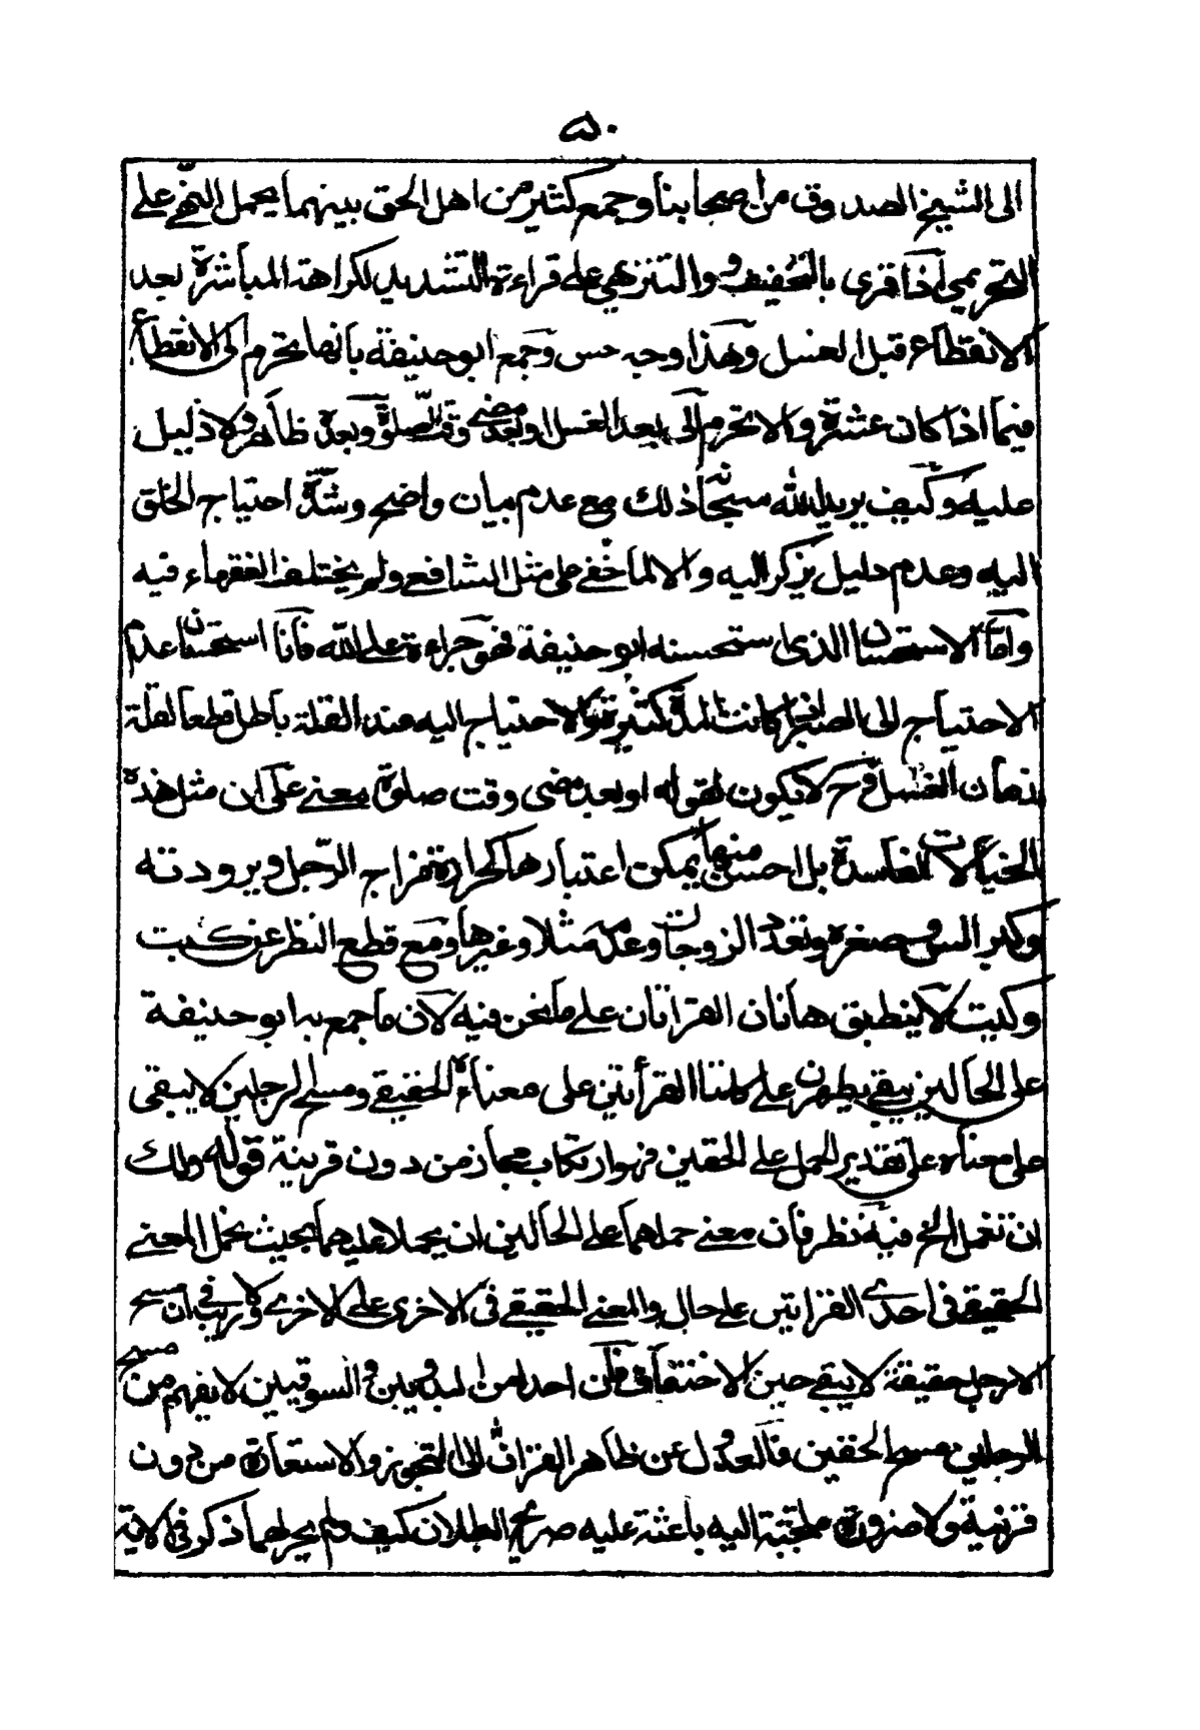 ۵۰
الى الشيخ الصدوق من اصحابنا وجمع كثير من اهل الحق بينهما بحمل النهى على
التحريمى اذا قرى بالتخفيف والتنزهى على قراءة التشديد لكراهة المباشرة بعد
الانقطاع قبل الغسل وهذا وجه حسن وجمع ابو حنيفة بانها تحرم الى الانقطاع
فيما اذا كان عشرة والا تحرم الى بعد الغسل او بعد مضى وقت الصلوة وبعده ظاهر ولا دليل
عليه وكيف يريد الله سبحانه ذلك مع عدم بيان واضح وشدة احتياج الخلق
اليه وعدم دليل يركن اليه والا لما خفى على مثل الشافعى ولم يختلف الفقهاء فيه
واما الاستحسان الذى استحسنه ابو حنيفة فهو جراءة على الله فانا استحسان عدم
الاحتياج الى الصبر اذا كانت المدة كثيرة والاحتياج اليه عند القلة باطل قطعا لقلة
زمان الغسل وح لا يكون لقوله او بعد مضى وقت صلوة معنى على ان مثل هذه
الخيالات الفاسدة بل احسن منها يمكن اعتبارها كحرارة مزاج الرجل وبرودته
وكبر السن وصغره وتعدد الزوجات وعدمه مثلا وغيرها ومع قطع النظر عن كيت
وكيت لا ينطبق هاتان القراتان على ما نحن فيه لان ما جمع به ابو حنيفة
على الحالين يبقى يطهرن على كلتا القرأتين على معناه الحقيقى ومسح الرجلين لا يبقى
على معناه على تقدير الحمل على الخفين فهو ارتكاب مجاز من دون قرينة قوله ولك
ان تفعل الخ فيه نظر فان معنى حملهما على الحالين ان يحملا عليهما بحيث يحمل المعنى
الحقيقى فى احدى القراتين على حال والمعنى الحقيقى فى الاخرى على الاخرى ولا ريب فى ان مسح
الارجل حقيقة لا يبقى حين الاختفاف فان احدا من البدويين والسوقيين لا يفهم من مسح
الرجلين مسح الخفين فالعدول عن ظاهر القران الى التجوز والاستعارة من دون
قرينة ولا ضرورة ملجئة اليه باعثة عليه صريح البطلان كيف ولم يجر لهما ذكر فى الاية